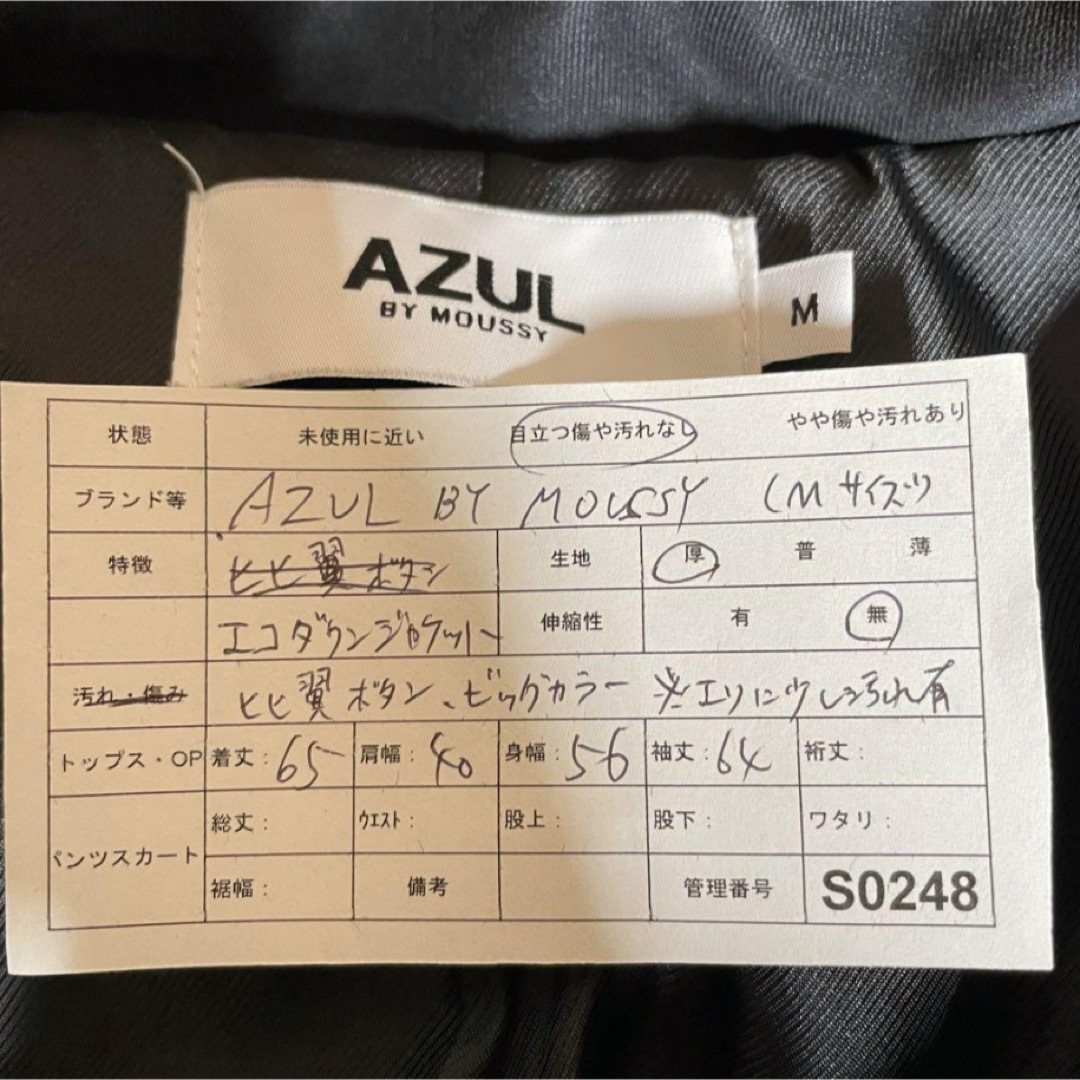 AZUL
BY MOUSSY
M
状態 未使用に近い 目立つ傷や汚れなし やや傷や汚れあり
ブランド等 AZUL BY MOUSSY (Mサイズ)
特徴 ヒヒ翼ボタン 生地 厚 普 薄
エコダウンジャケット 伸縮性 有 無
汚れ・傷み ヒヒ翼ボタン、ビッグカラー ※エリに少しよごれ有
トップス・OP 着丈:65 肩幅:40 身幅:56 袖丈:64 裄丈:
パンツスカート 総丈: ウエスト: 股上: 股下: ワタリ:
裾幅: 備考 管理番号 S0248